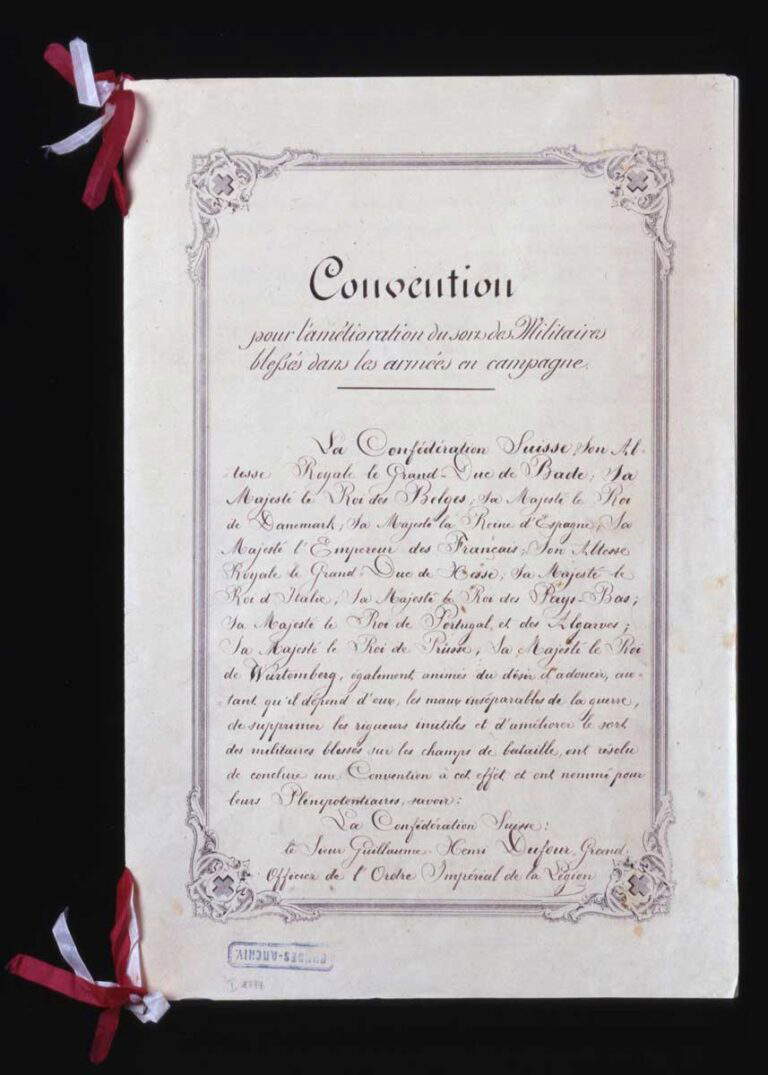 Convention
pour l'amélioration du sort des Militaires
blessés dans les armées en campagne.
La Confédération Suisse, Son Al-
-tesse Royale le Grand-Duc de Bade; Sa
Majesté le Roi des Belges; Sa Majesté le Roi
de Danemark; Sa Majesté la Reine d'Espagne; Sa
Majesté l'Empereur des Français; Son Altesse
Royale le Grand-Duc de Hesse; Sa Majesté le
Roi d'Italie; Sa Majesté le Roi des Pays-Bas;
Sa Majesté le Roi de Portugal et des Algarves;
Sa Majesté le Roi de Prusse, Sa Majesté le Roi
de Würtemberg, également animés du désir d'adoucir, au-
-tant qu'il dépend d'eux, les maux inséparables de la guerre,
de supprimer les rigueurs inutiles et d'améliorer le sort
des militaires blessés sur les champs de bataille, ont résolu
de conclure une Convention à cet effet et ont nommé pour
leurs Plénipotentiaires, savoir:
La Confédération Suisse:
le Sieur Guillaume-Henri Dufour, Grand
Officier de l'Ordre Impérial de la Légion
BUNDES-ARCHIV